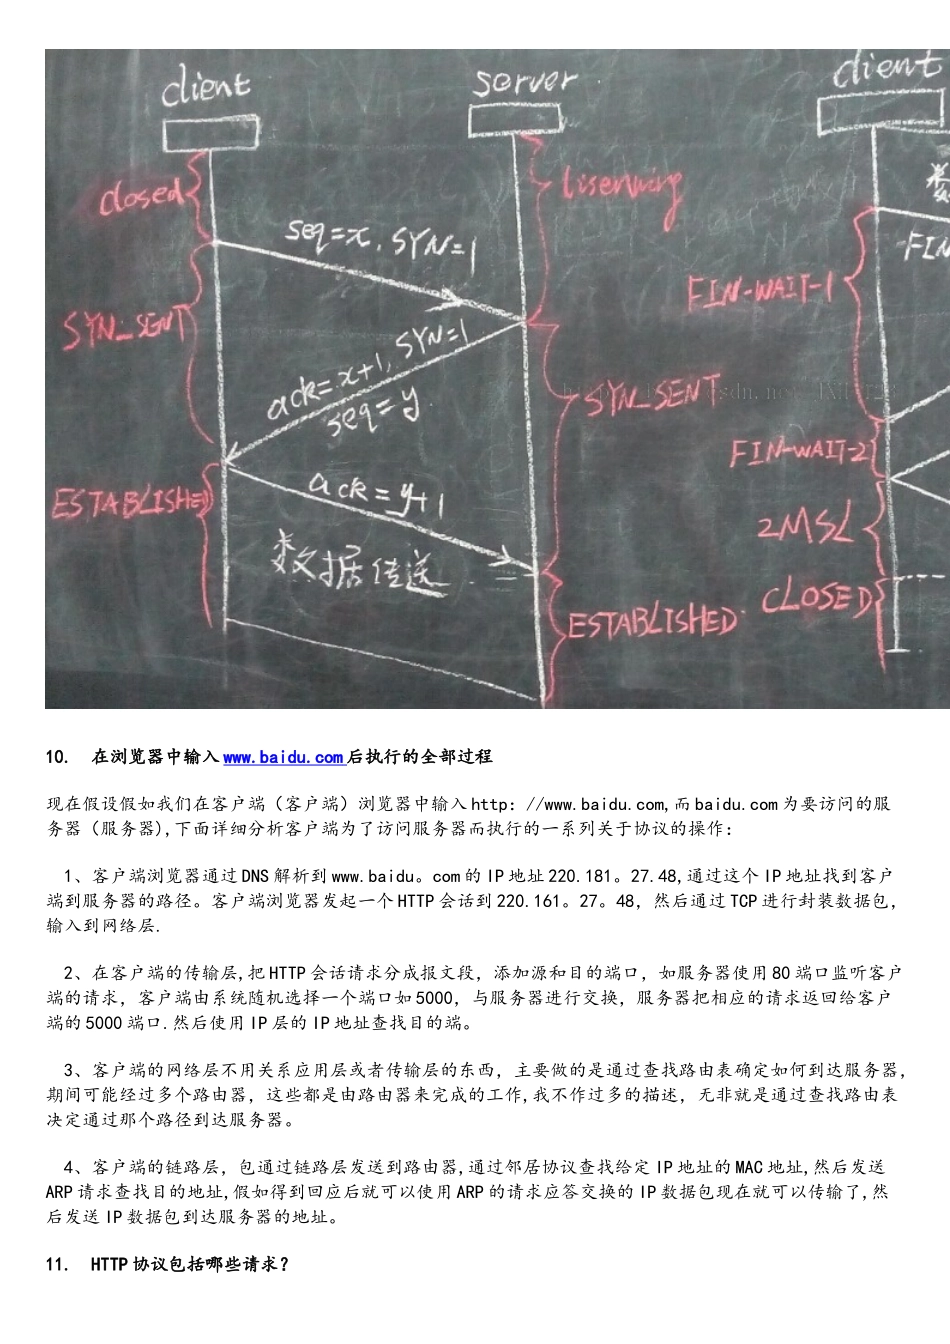 client
server
client
closed
lisenning
seq=x, SYN=1
FIN
FIN-WAIT-1
SYN_SENT
ack=x+1, SYN=1
seq=y
SYN_SENT
FIN-WAIT-2
ESTABLISHED
ack=y+1
2MSL
数据传送
CLOSED
ESTABLISHED
10. 在浏览器中输入 www.baidu.com 后执行的全部过程
现在假设假如我们在客户端（客户端）浏览器中输入 http：//www.baidu.com,而 baidu.com 为要访问的服
务器（服务器）,下面详细分析客户端为了访问服务器而执行的一系列关于协议的操作：
1、客户端浏览器通过 DNS 解析到 www.baidu。com 的 IP 地址 220.181。27.48,通过这个 IP 地址找到客户
端到服务器的路径。客户端浏览器发起一个 HTTP 会话到 220.161。27。48，然后通过 TCP 进行封装数据包，
输入到网络层.
2、在客户端的传输层,把 HTTP 会话请求分成报文段，添加源和目的端口，如服务器使用 80 端口监听客户
端的请求，客户端由系统随机选择一个端口如 5000，与服务器进行交换，服务器把相应的请求返回给客户
端的 5000 端口.然后使用 IP 层的 IP 地址查找目的端。
3、客户端的网络层不用关系应用层或者传输层的东西，主要做的是通过查找路由表确定如何到达服务器，
期间可能经过多个路由器，这些都是由路由器来完成的工作,我不作过多的描述，无非就是通过查找路由表
决定通过那个路径到达服务器。
4、客户端的链路层，包通过链路层发送到路由器,通过邻居协议查找给定 IP 地址的 MAC 地址,然后发送
ARP 请求查找目的地址,假如得到回应后就可以使用 ARP 的请求应答交换的 IP 数据包现在就可以传输了,然
后发送 IP 数据包到达服务器的地址。
11. HTTP 协议包括哪些请求？